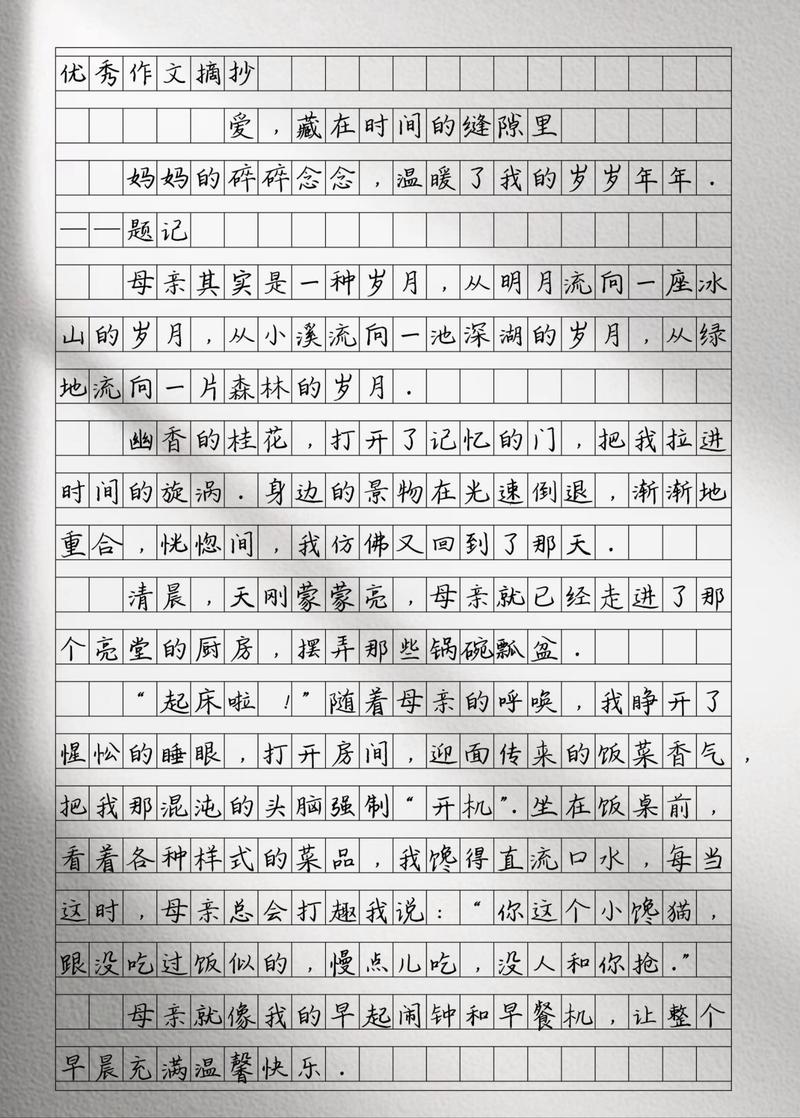 优秀作文摘抄
爱，藏在时间的缝隙里
妈妈的碎碎念念，温暖了我的岁岁年年．
——题记
母亲其实是一种岁月，从明月流向一座冰
山的岁月，从小溪流向一池深湖的岁月，从绿
地流向一片森林的岁月．
幽香的桂花，打开了记忆的门，把我拉进
时间的旋涡．身边的景物在光速倒退，渐渐地
重合，恍惚间，我仿佛又回到了那天．
清晨，天刚蒙蒙亮，母亲就已经走进了那
个亮堂的厨房，摆弄那些锅碗瓢盆．
“起床啦！”随着母亲的呼唤，我睁开了
惺忪的睡眼，打开房间，迎面传来的饭菜香气，
把我那混沌的头脑强制“开机”．坐在饭桌前，
看着各种样式的菜品，我馋得直流口水，每当
这时，母亲总会打趣我说：“你这个小馋猫，
跟没吃过饭似的，慢点儿吃，没人和你抢．”
母亲就像我的早起闹钟和早餐机，让整个
早晨充满温馨快乐．